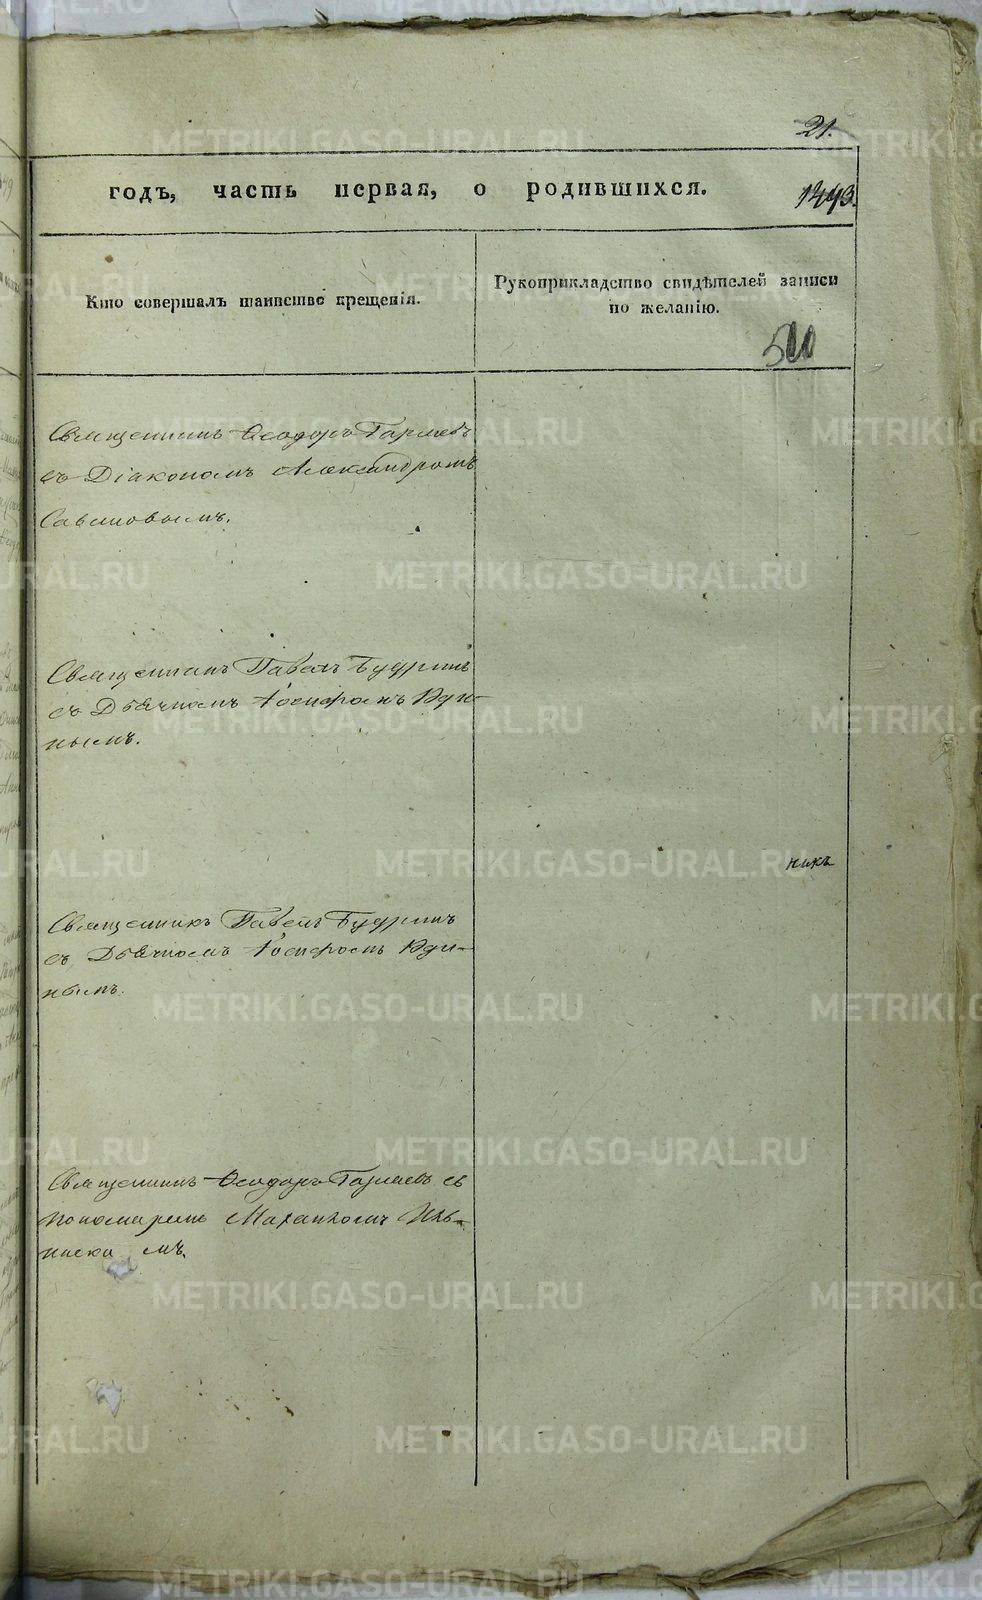 21.
годъ, часть первая, о родившихся.
1343.
Кто совершалъ таинство крещенія.
Рукоприкладство свидѣтелей записи
по желанію.
500
Священникъ Ѳеодоръ
съ Діакономъ Александромъ
Савиновымъ.
Священникъ Павелъ Будринъ
съ Дьячкомъ Іосифомъ Юди-
нымъ.
никъ
Священникъ Павелъ Будринъ
съ Дьячкомъ Іосифомъ Юди-
нымъ.
Священникъ Ѳеодоръ съ
пономаремъ
METRIKI.GASO-URAL.RU